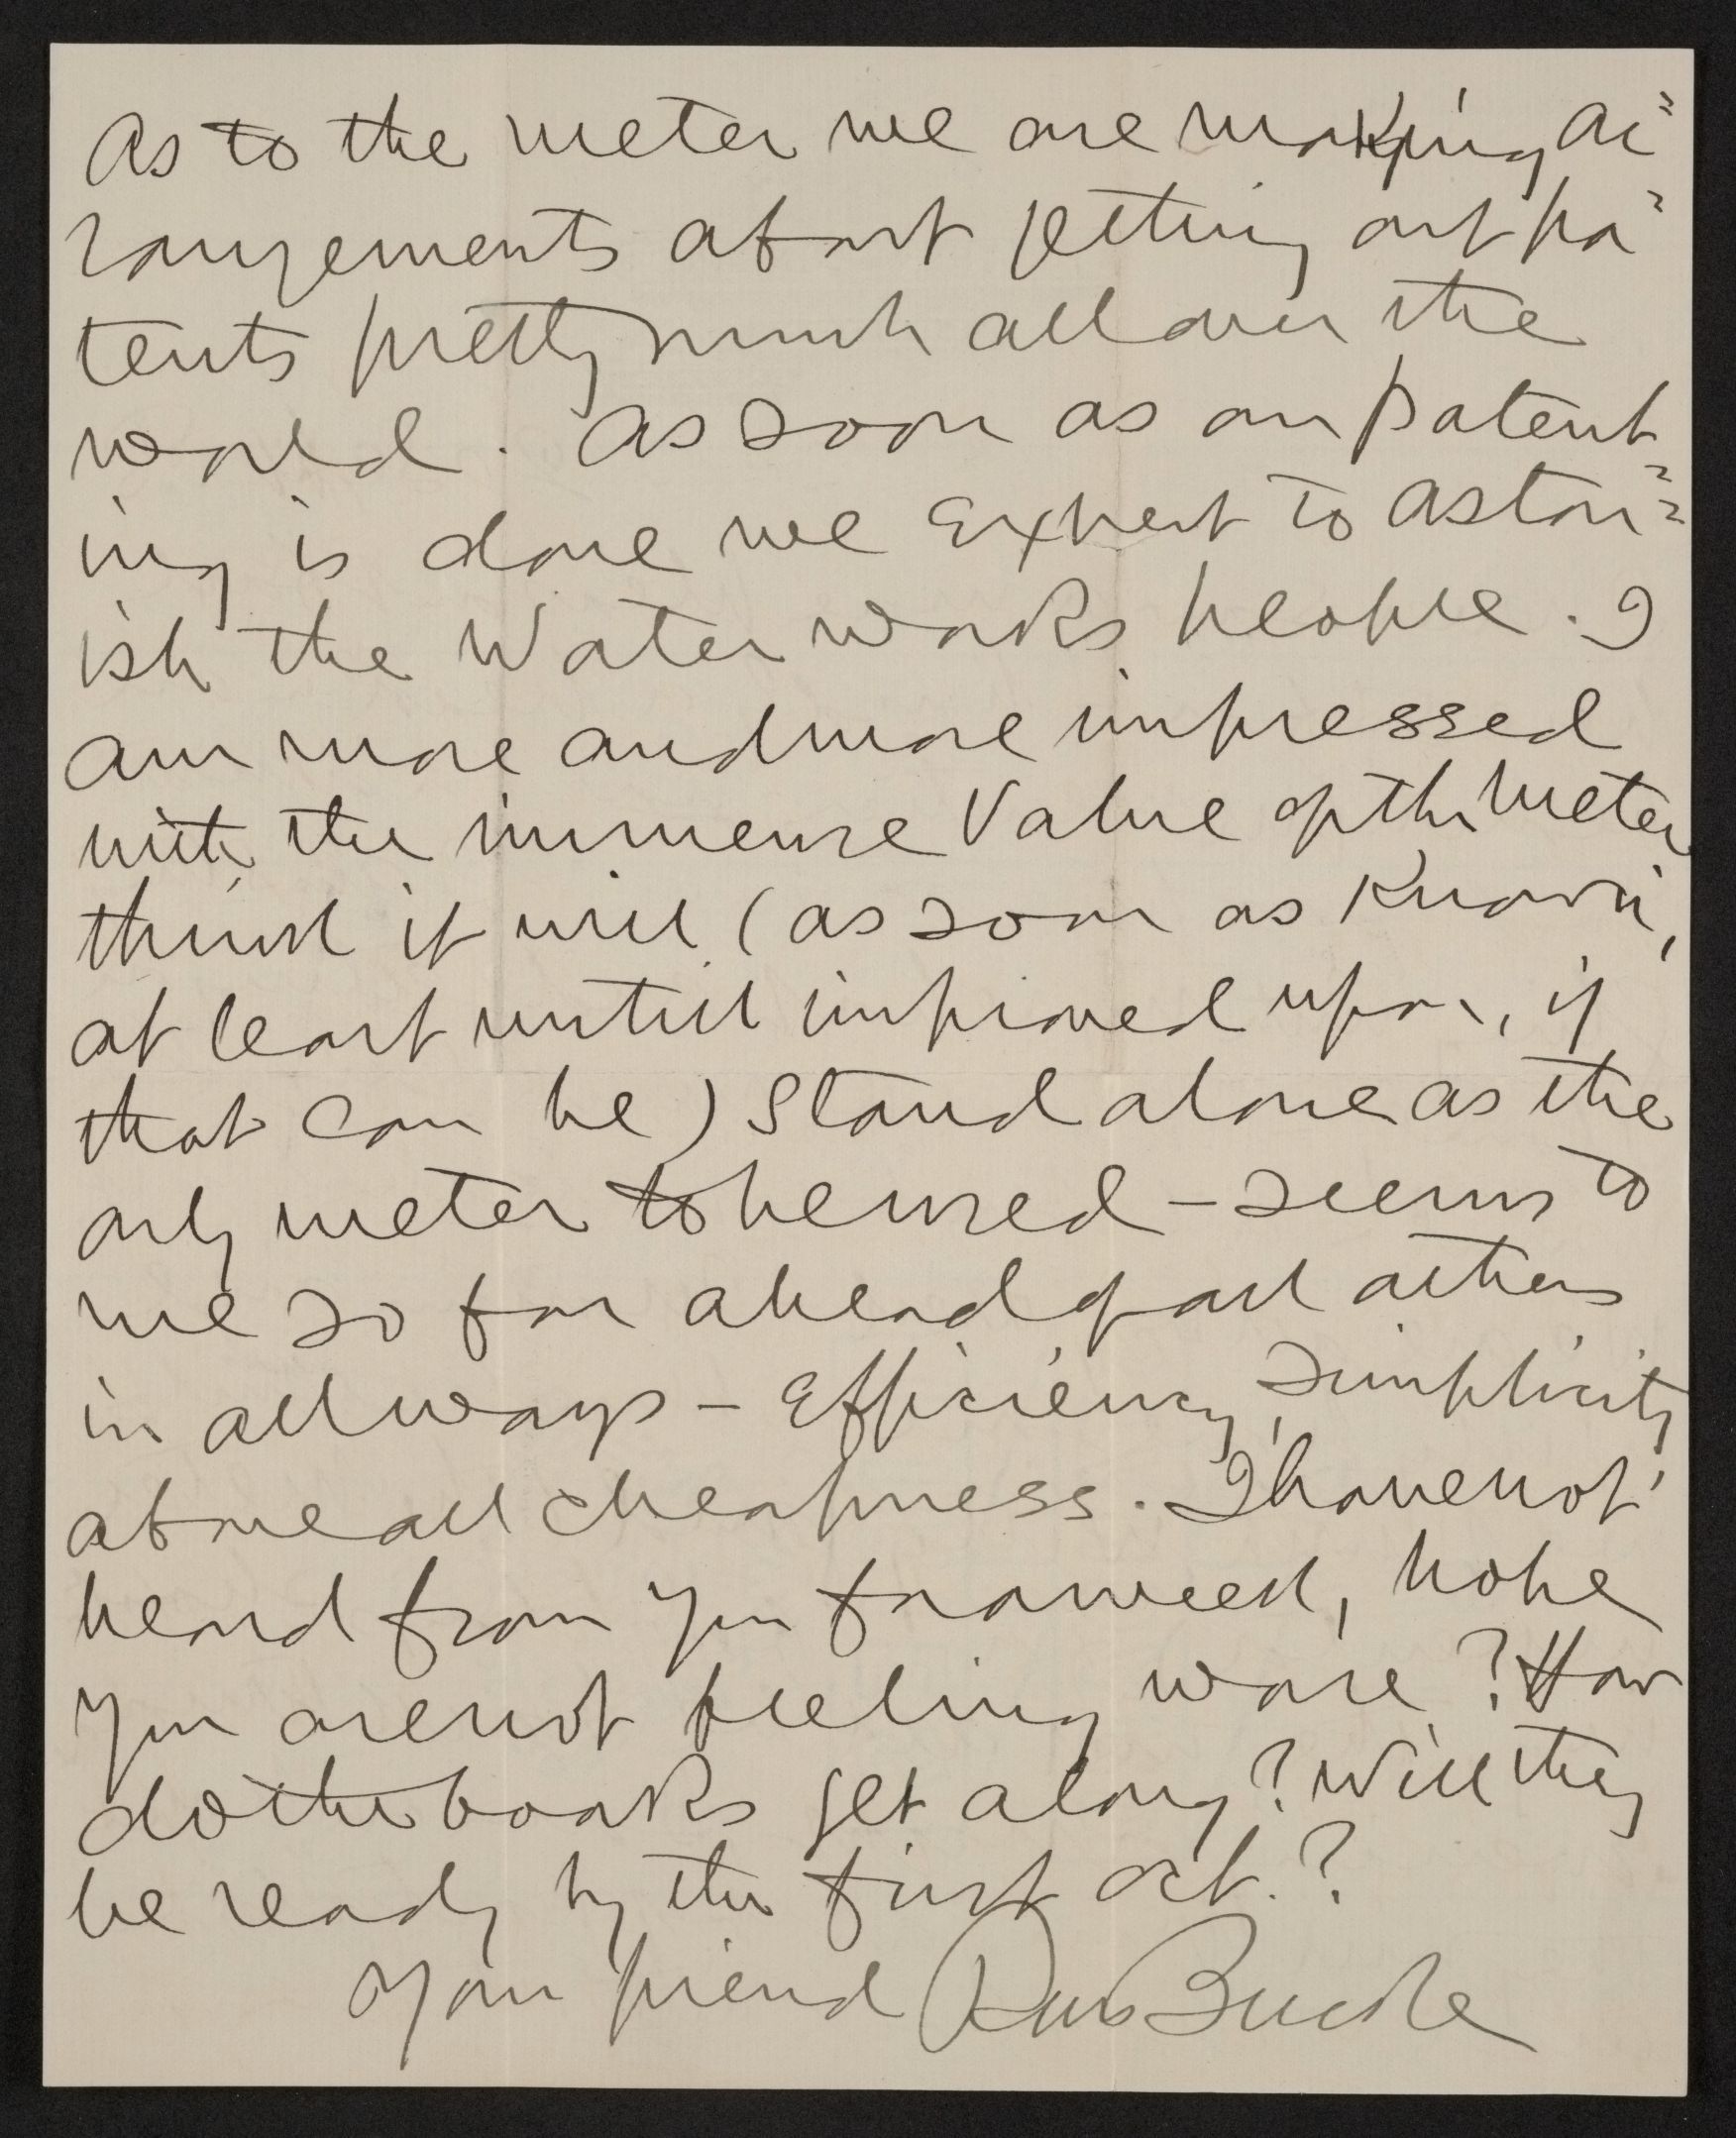 As to the meter we are making ar=
rangements about getting out pa=
tents pretty much all over the
world. As soon as our patent=
ing is done we expect to aston=
ish the Water works people. I
am more and more impressed
with the immense Value of the meter
think it will (as soon as Known,
at least untill improved upon, if
that can be) Stand alone as the
only meter to be used – seems to
me so far ahead of all others
in all ways – Efficiency, simplicity
above all cheapness. I have not
heard from you for a week, hope
you are not feeling worse? How
do the books get along? Will they
be ready by the first Oct.?
Your friend RM Bucke